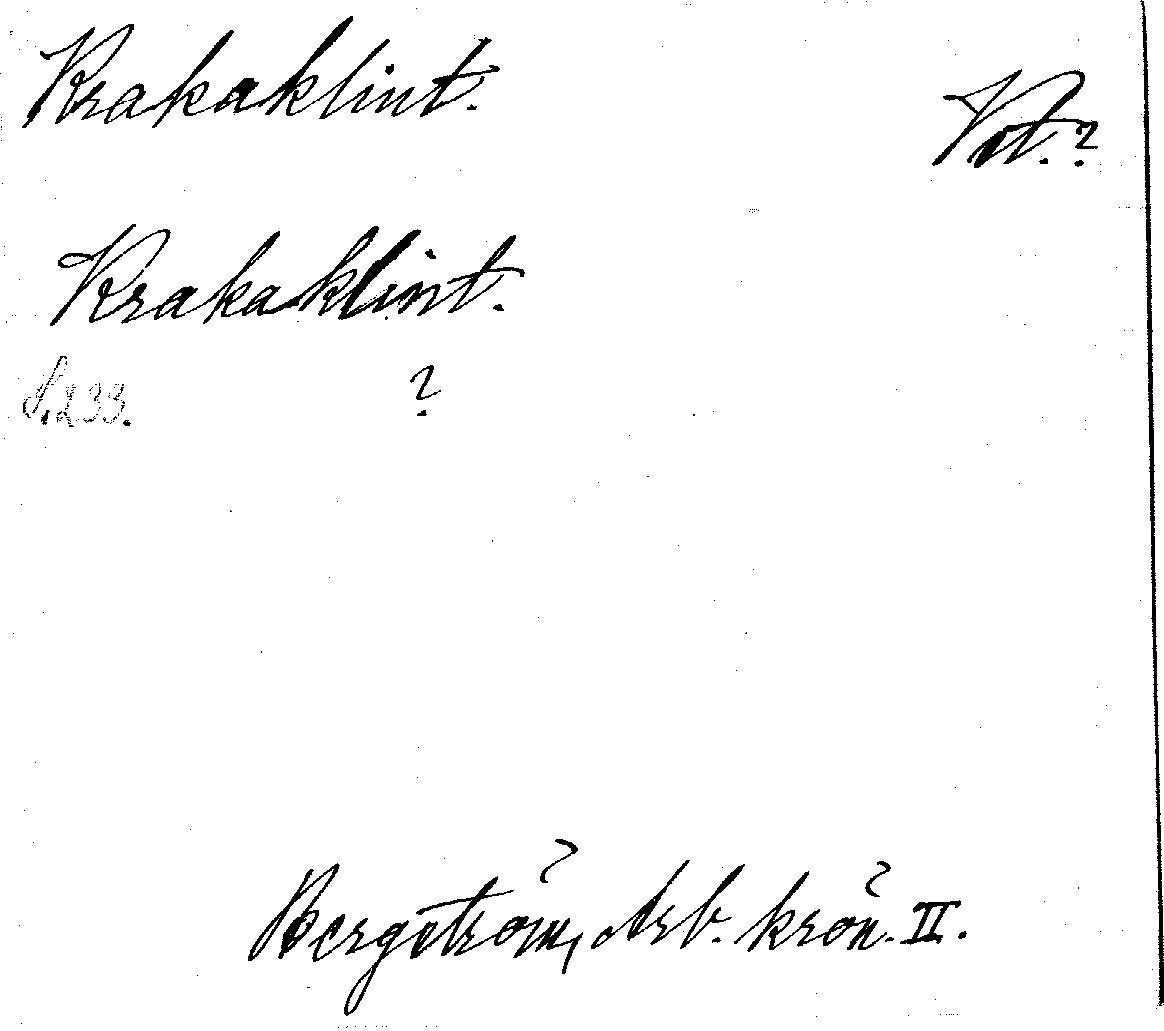 Krakaklint.
Vst.?
Krakaklint.
S. 233.
?
Bergström, Arb. krön. II.